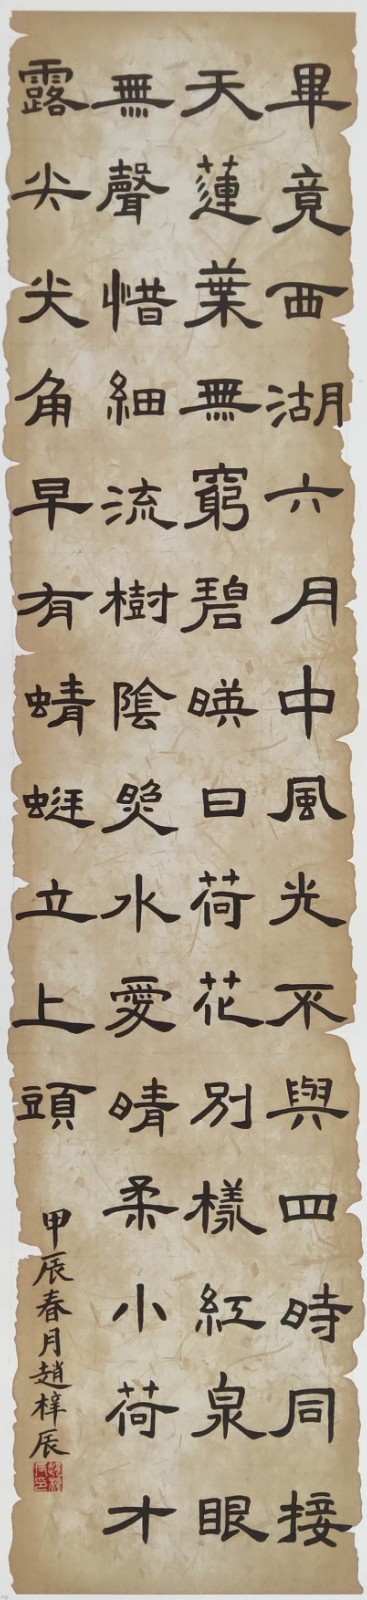 畢竟西湖六月中風光不與四時同接
天蓮葉無窮碧暎日荷花別樣紅泉眼
無聲惜細流樹陰照水愛晴柔小荷才
露尖尖角早有蜻蜓立上頭
甲辰春月趙梓辰